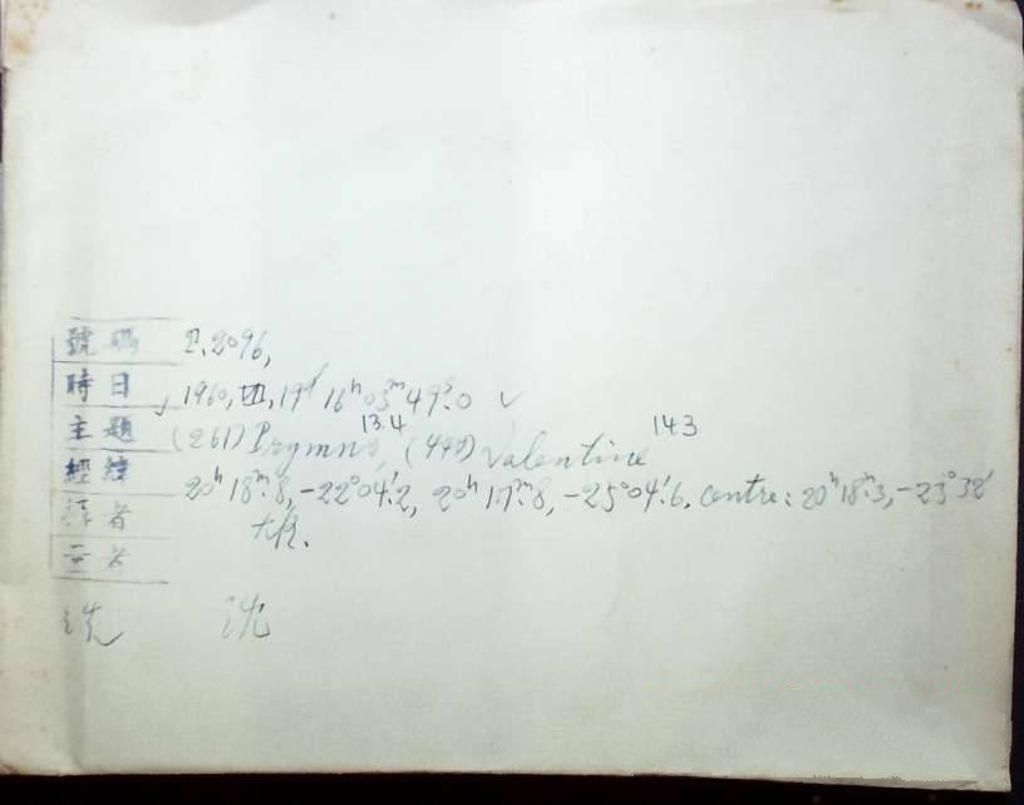 號碼 I.2096,
時日 1960, VII, 19ᵈ 16ʰ 03ᵐ 49ˢ.0 ✓
13.4 143
主題 (261) Prymno, (447) Valentine
經緯 20ʰ 18ᵐ.8, -22°04'.2, 20ʰ 17ᵐ.8, -25°04'.6. centre: 20ʰ18ᵐ.3, -23°32'
者
者
沈